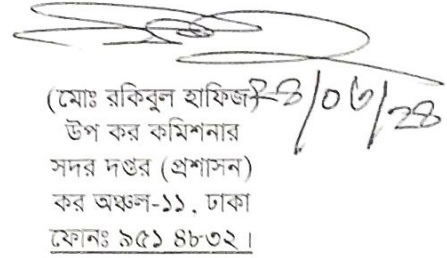 (মোঃ রকিবুল হাফিজ) ২৪/০৬/২৪
উপ কর কমিশনার
সদর দপ্তর (প্রশাসন)
কর অঞ্চল-১১, ঢাকা
ফোনঃ ৯৫১ ৪৮৩২ ।